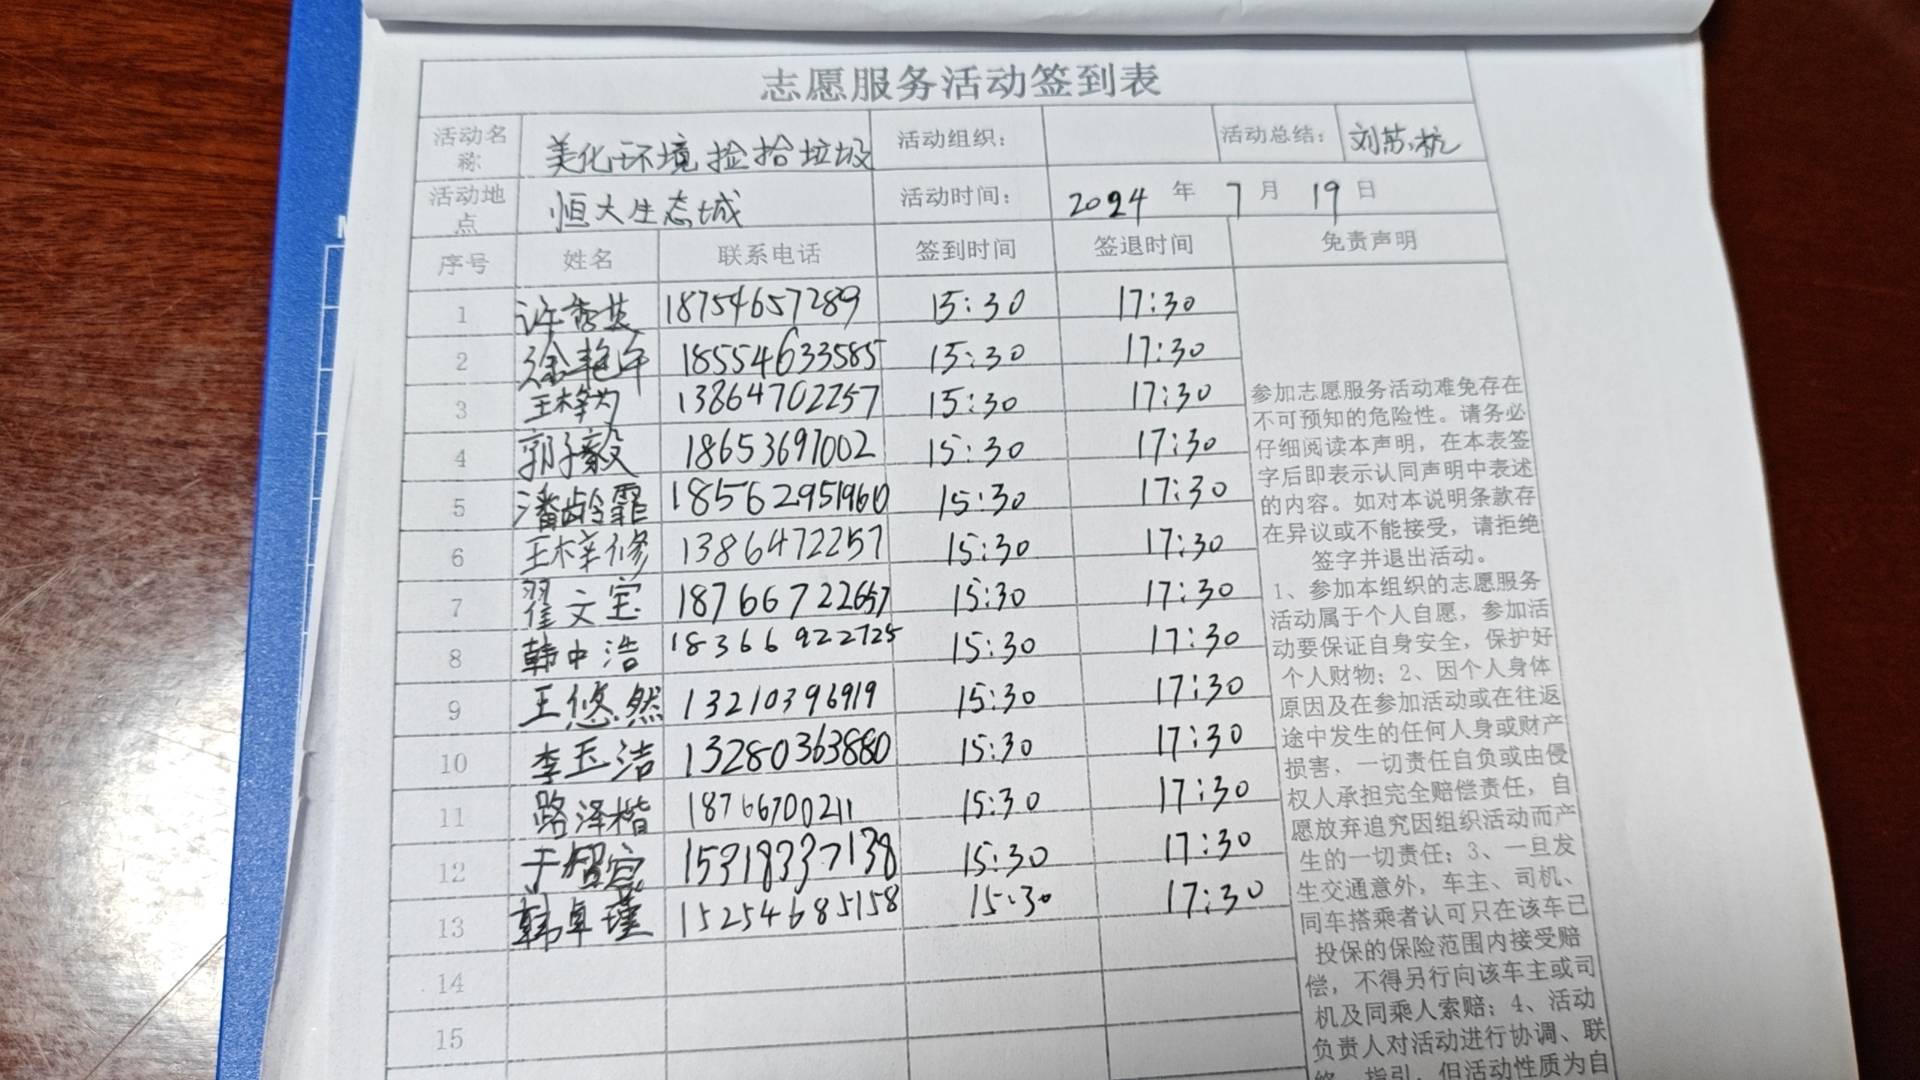 志愿服务活动签到表
活动名称 美化环境捡拾垃圾 活动组织： 活动总结： 刘苏杭
活动地点 恒大生态城 活动时间： 2024 年 7 月 19 日
序号 姓名 联系电话 签到时间 签退时间 免责声明
1 许秀英 18754657289 15:30 17:30
2 徐艳午 18554633585 15:30 17:30
3 王梓为 13864702257 15:30 17:30
4 郭子毅 18653697002 15:30 17:30
5 潘龄霏 18562951960 15:30 17:30
6 王梓修 1386472257 15:30 17:30
7 翟文宝 18766722657 15:30 17:30
8 韩中浩 18366922725 15:30 17:30
9 王悠然 13210396919 15:30 17:30
10 李玉洁 13280363880 15:30 17:30
11 路泽楷 18766700211 15:30 17:30
12 于 15318337138 15:30 17:30
13 韩卓瑾 15254685158 15:30 17:30
14
15
参加志愿服务活动难免存在
不可预知的危险性。请务必
仔细阅读本声明，在本表签
字后即表示认同声明中表述
的内容。如对本说明条款存
在异议或不能接受，请拒绝
签字并退出活动。
1、参加本组织的志愿服务
活动属于个人自愿，参加活
动要保证自身安全，保护好
个人财物；2、因个人身体
原因及在参加活动或在往返
途中发生的任何人身或财产
损害，一切责任自负或由侵
权人承担完全赔偿责任，自
愿放弃追究因组织活动而产
生的一切责任；3、一旦发
生交通意外，车主、司机、
同车搭乘者认可只在该车已
投保的保险范围内接受赔
偿，不得另行向该车主或司
机及同乘人索赔；4、活动
负责人对活动进行协调、联
络、指引，但活动性质为自